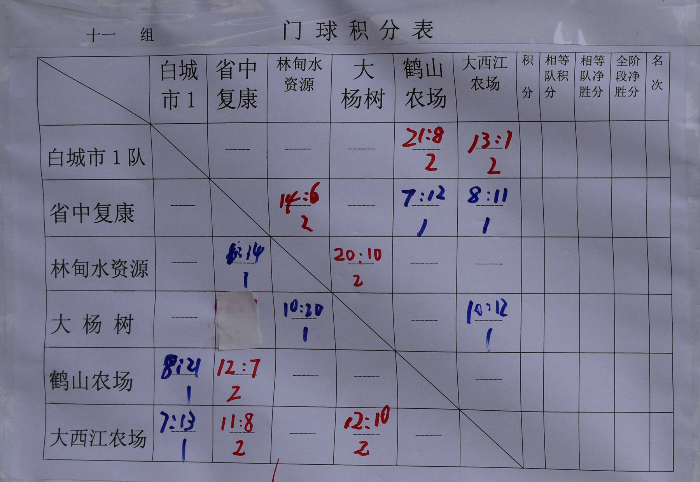 十一 组 门球积分表
白城市1 省中复康 林甸水资源 大杨树 鹤山农场 大西江农场 积分 相等队积分 相等队净胜分 全阶段净胜分 名次
白城市1队 —— —— —— 21:8 2 13:7 2
省中复康 —— 14:6 2 —— 7:12 1 8:11 1
林甸水资源 —— 6:14 1 20:10 2 —— ——
大杨树 —— 10:20 1 —— 10:12 1
鹤山农场 8:21 1 12:7 2 —— —— ——
大西江农场 7:13 1 11:8 2 —— 12:10 2 ——